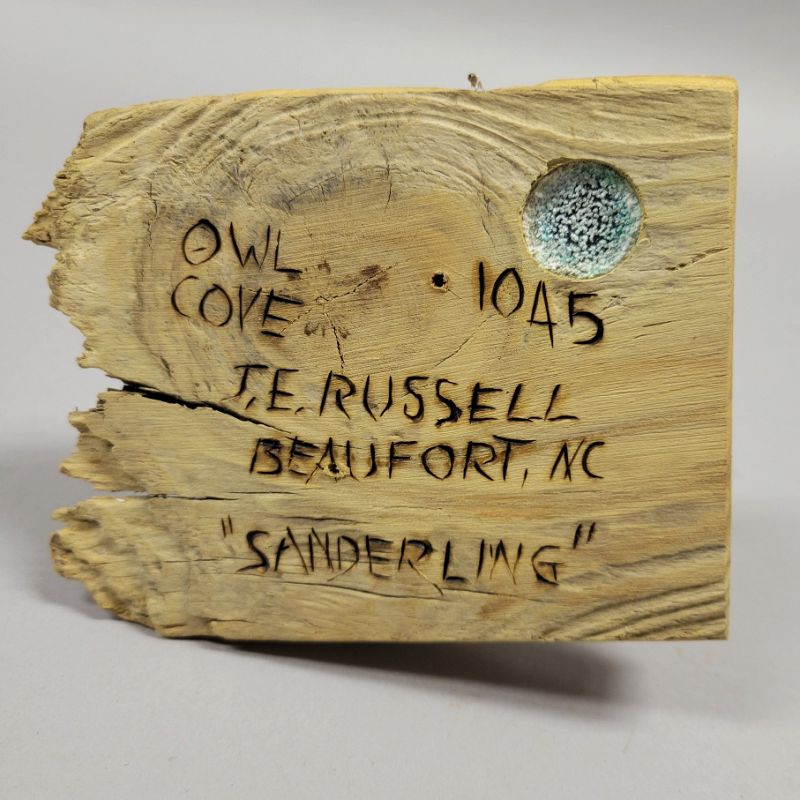 OWL
COVE
10A5
J.E. RUSSELL
BEAUFORT, NC
"SANDERLING"